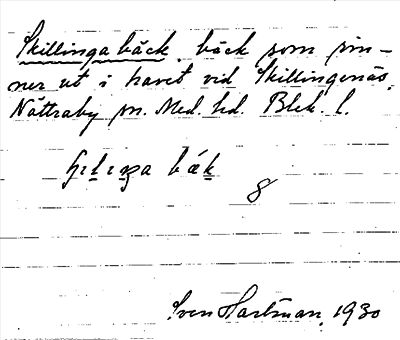 Skillingabäck, bäck som rin-
ner ut i havet vid Skillingenäs,
Nättraby sn. Med. hd. Blek. l.
bäk
8
Sven Hartman, 1930